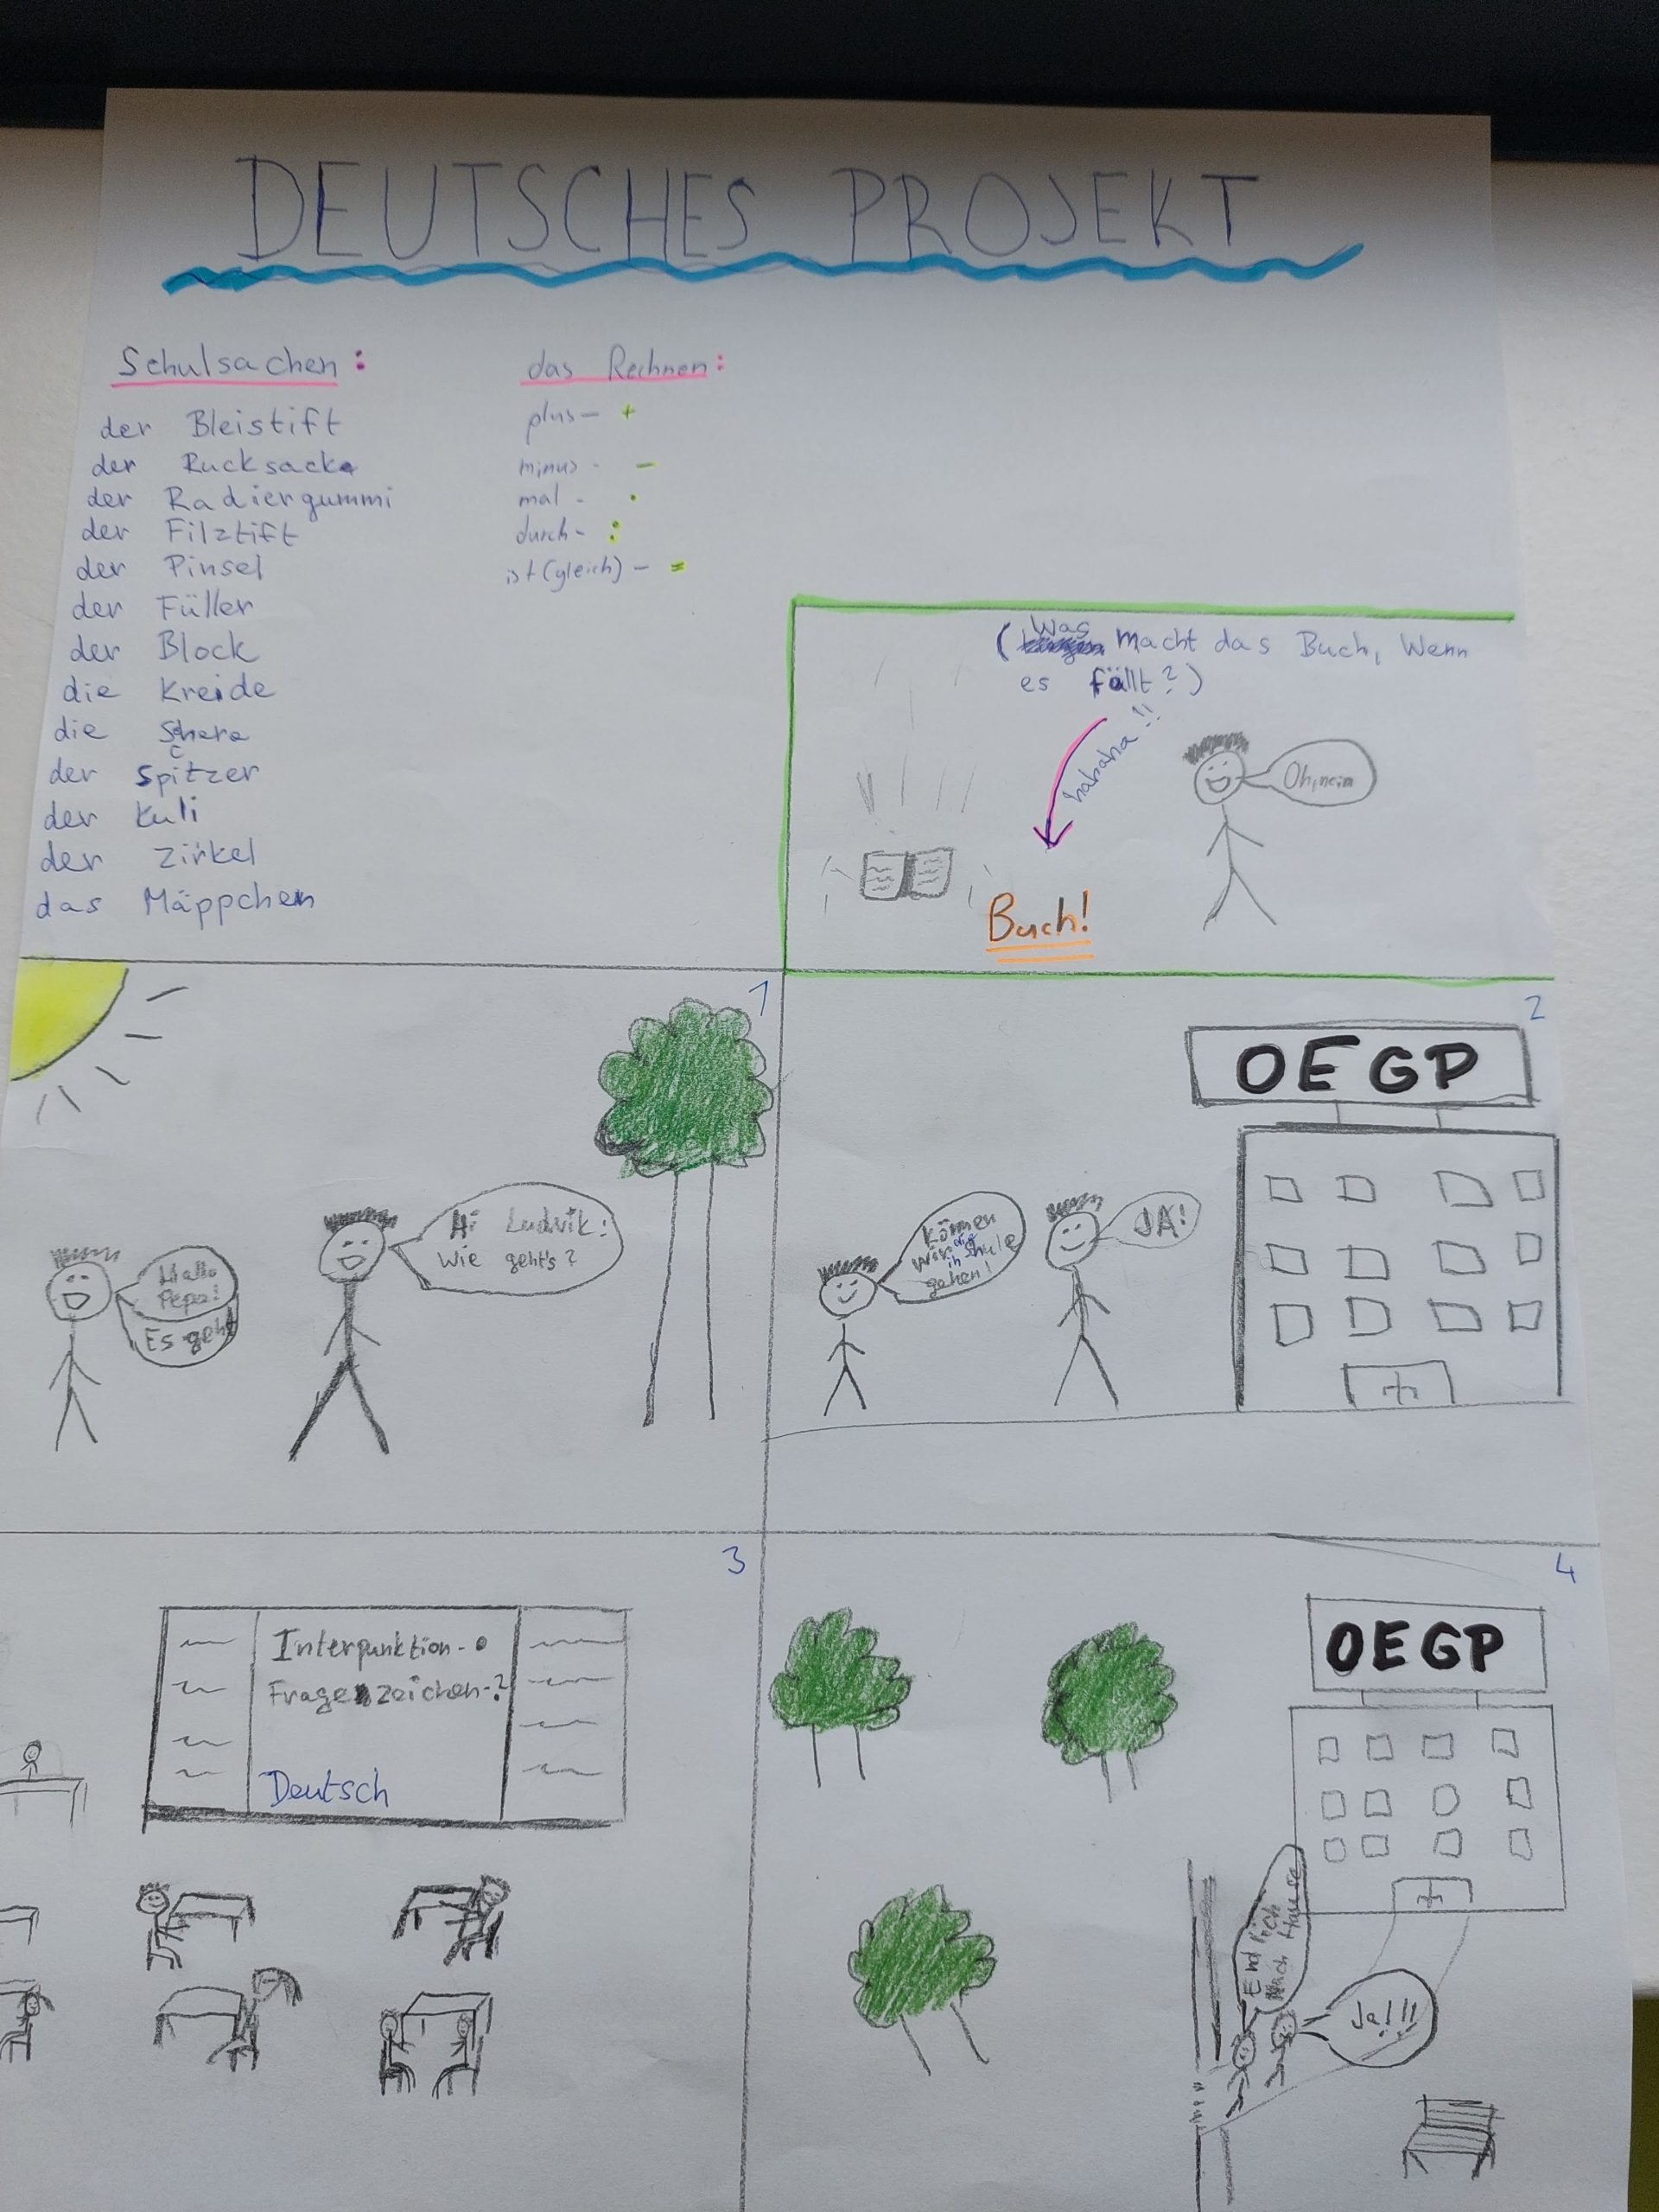 DEUTSCHES PROJEKT
Schulsachen:
der Bleistift
der Rucksack
der Radiergummi
der Filztift
der Pinsel
der Füller
der Block
die Kreide
die Schere
der Spitzer
der Kuli
der Zirkel
das Mäppchen
das Rechnen:
plus - +
minus - -
mal - ·
durch - :
ist (gleich) - =
(Was macht das Buch, Wenn
es fällt?)
hahaha!!
Oh, nein
Buch!
1
Hallo
Pepa!
Es geht
Hi Ludvik!
Wie geht's?
2
OEGP
Können
wir in die Schule
gehen!
JA!
3
Interpunktion - .
Fragezeichen - ?
Deutsch
4
OEGP
Endlich
Nach Hause
Ja!!!